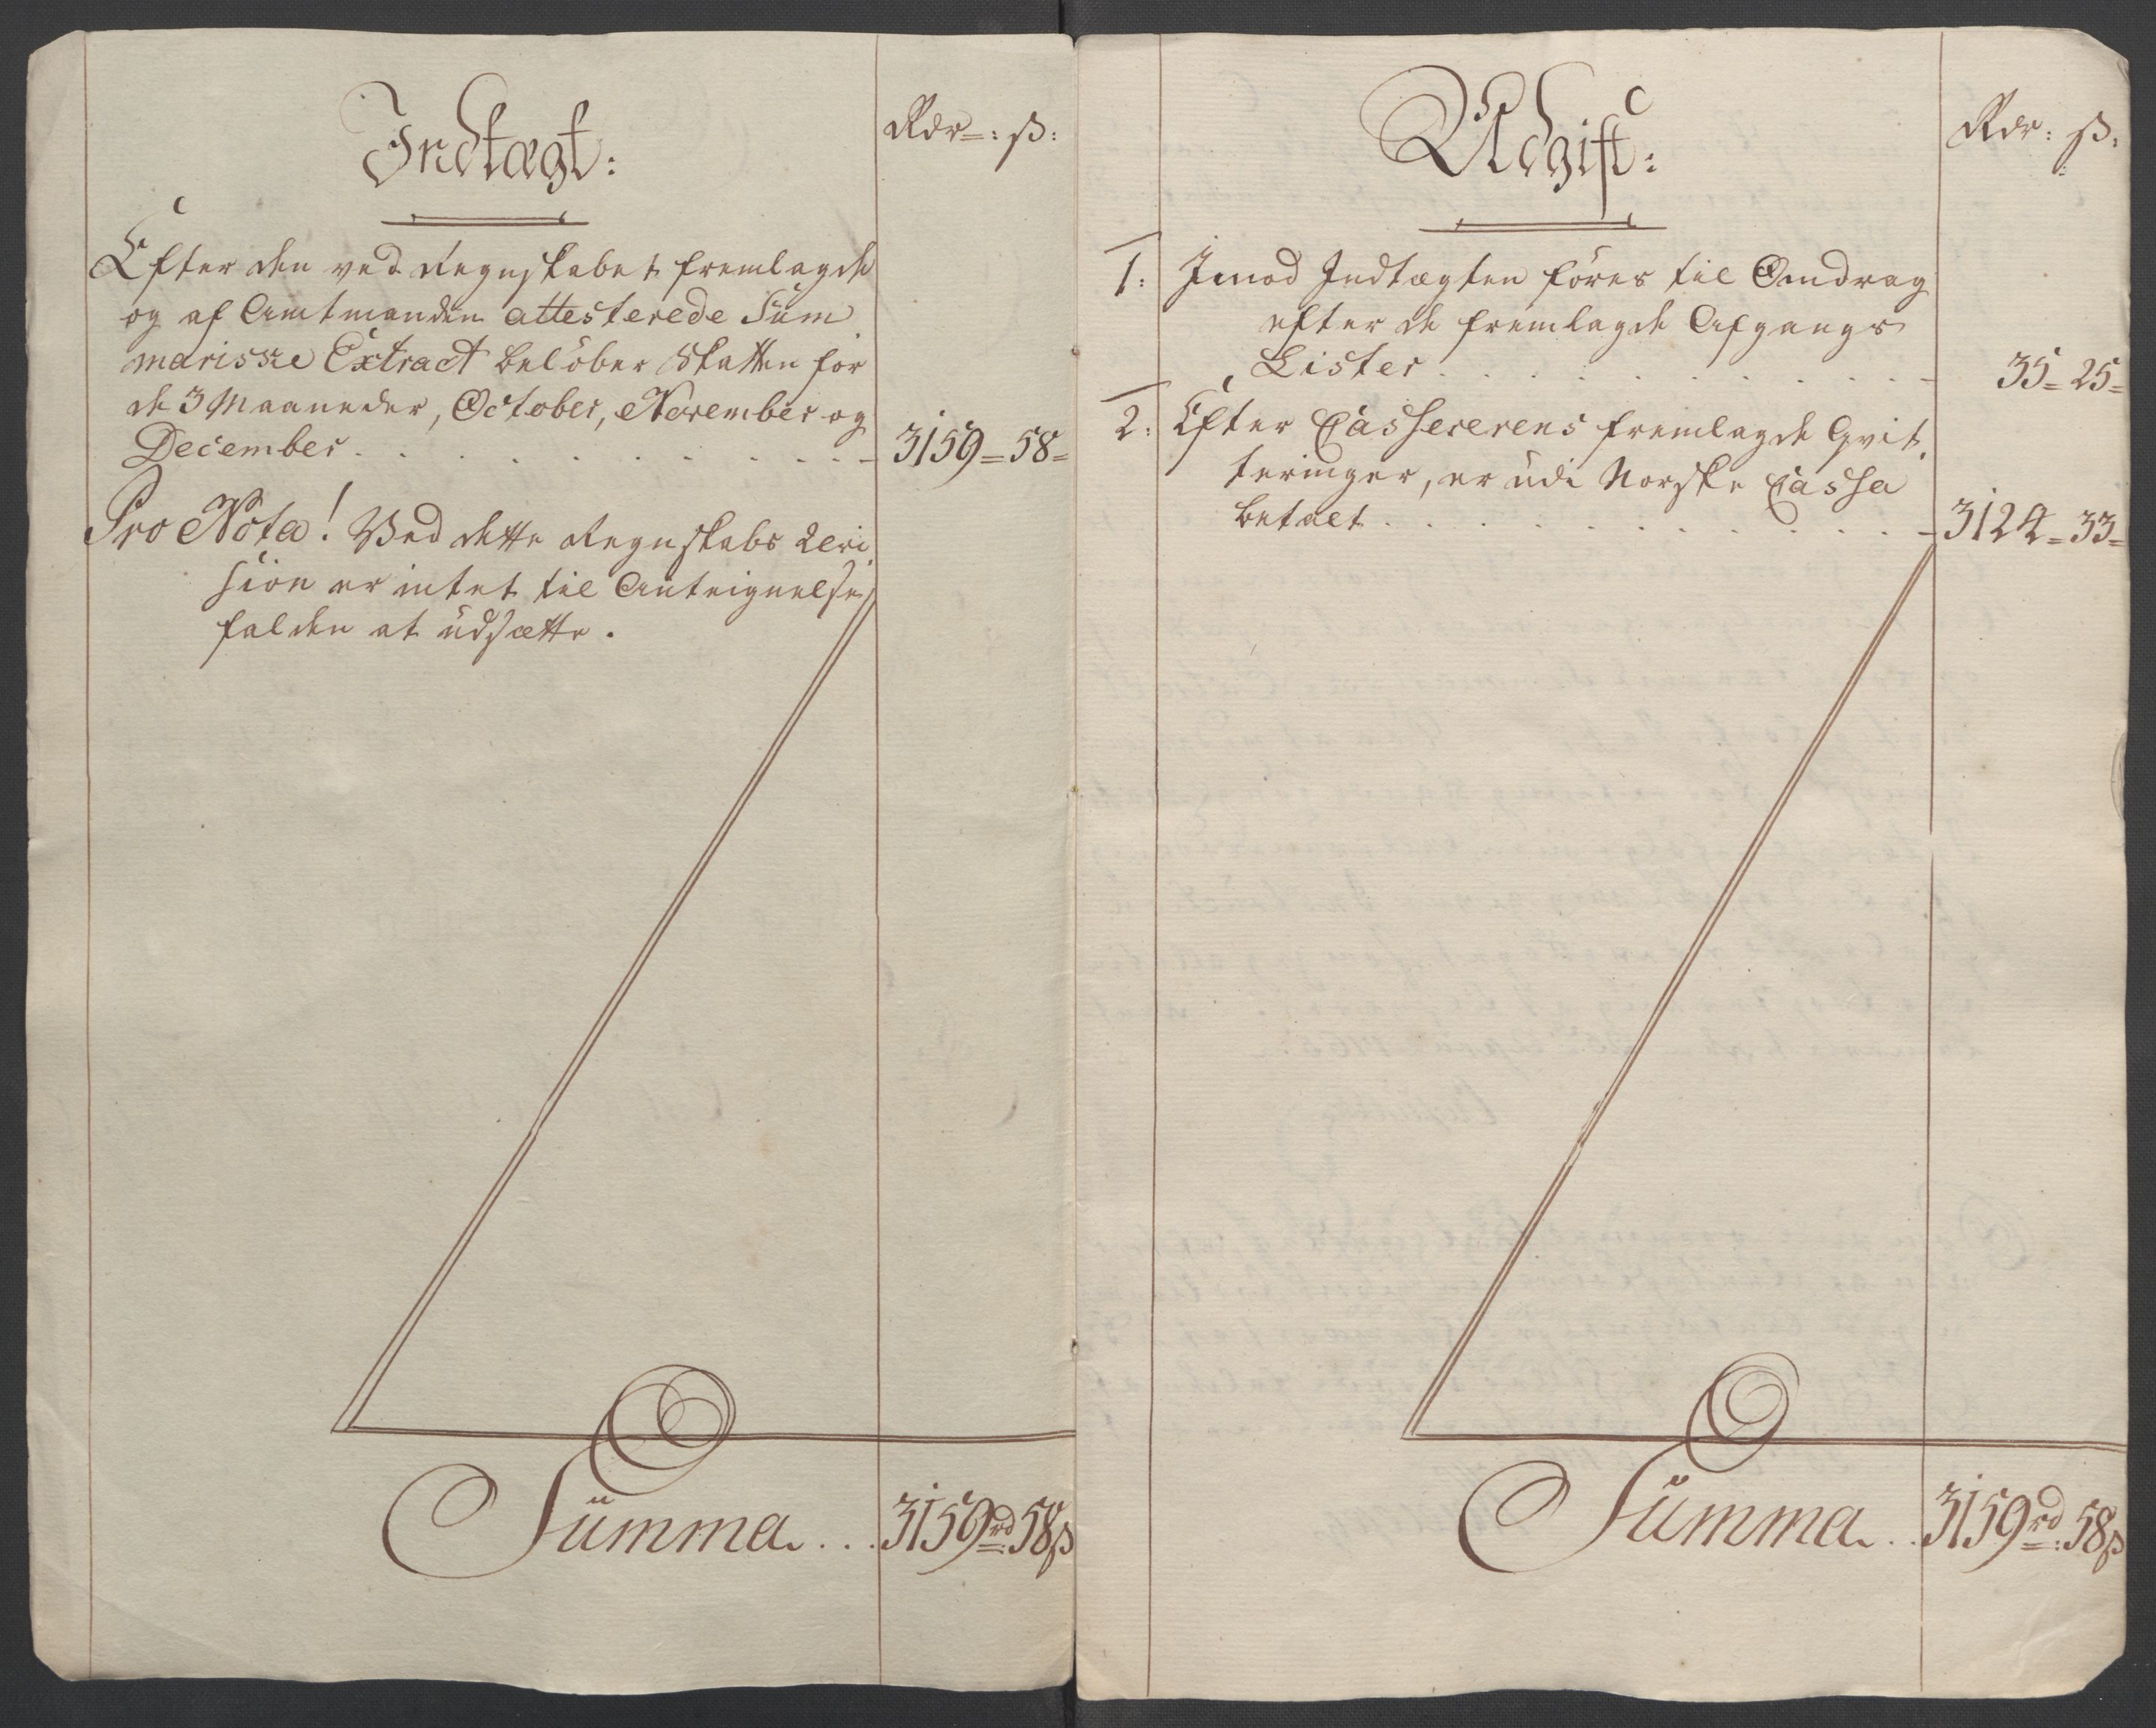 Indtægt:
Rdr: ß:
Efter den ved Regnskabet fremlagde
og af Amtmanden attesterede Sum
mariske Extract belöber Skatten for
de 3 Maaneder, October, November og
December . . . . . . . . . . 3159 = 58 =
Pro Nota! Ved dette Regnskabs Revi
sion er intet til Anteignelse
falden at udsætte.
Summa . . . 3159rd: 58ß
Udgift:
Rdr: ß:
1: Imod Indtægten föres til Omdrag
efter de fremlagde Afgangs
Lister . . . . . . . . . . 35 = 25 =
2: Efter Cassererens fremlagde Qvit
teringer, er udi Norske Cassa
betalt . . . . . . . . . . 3124 = 33 =
Summa . . 3159rd: 58ß